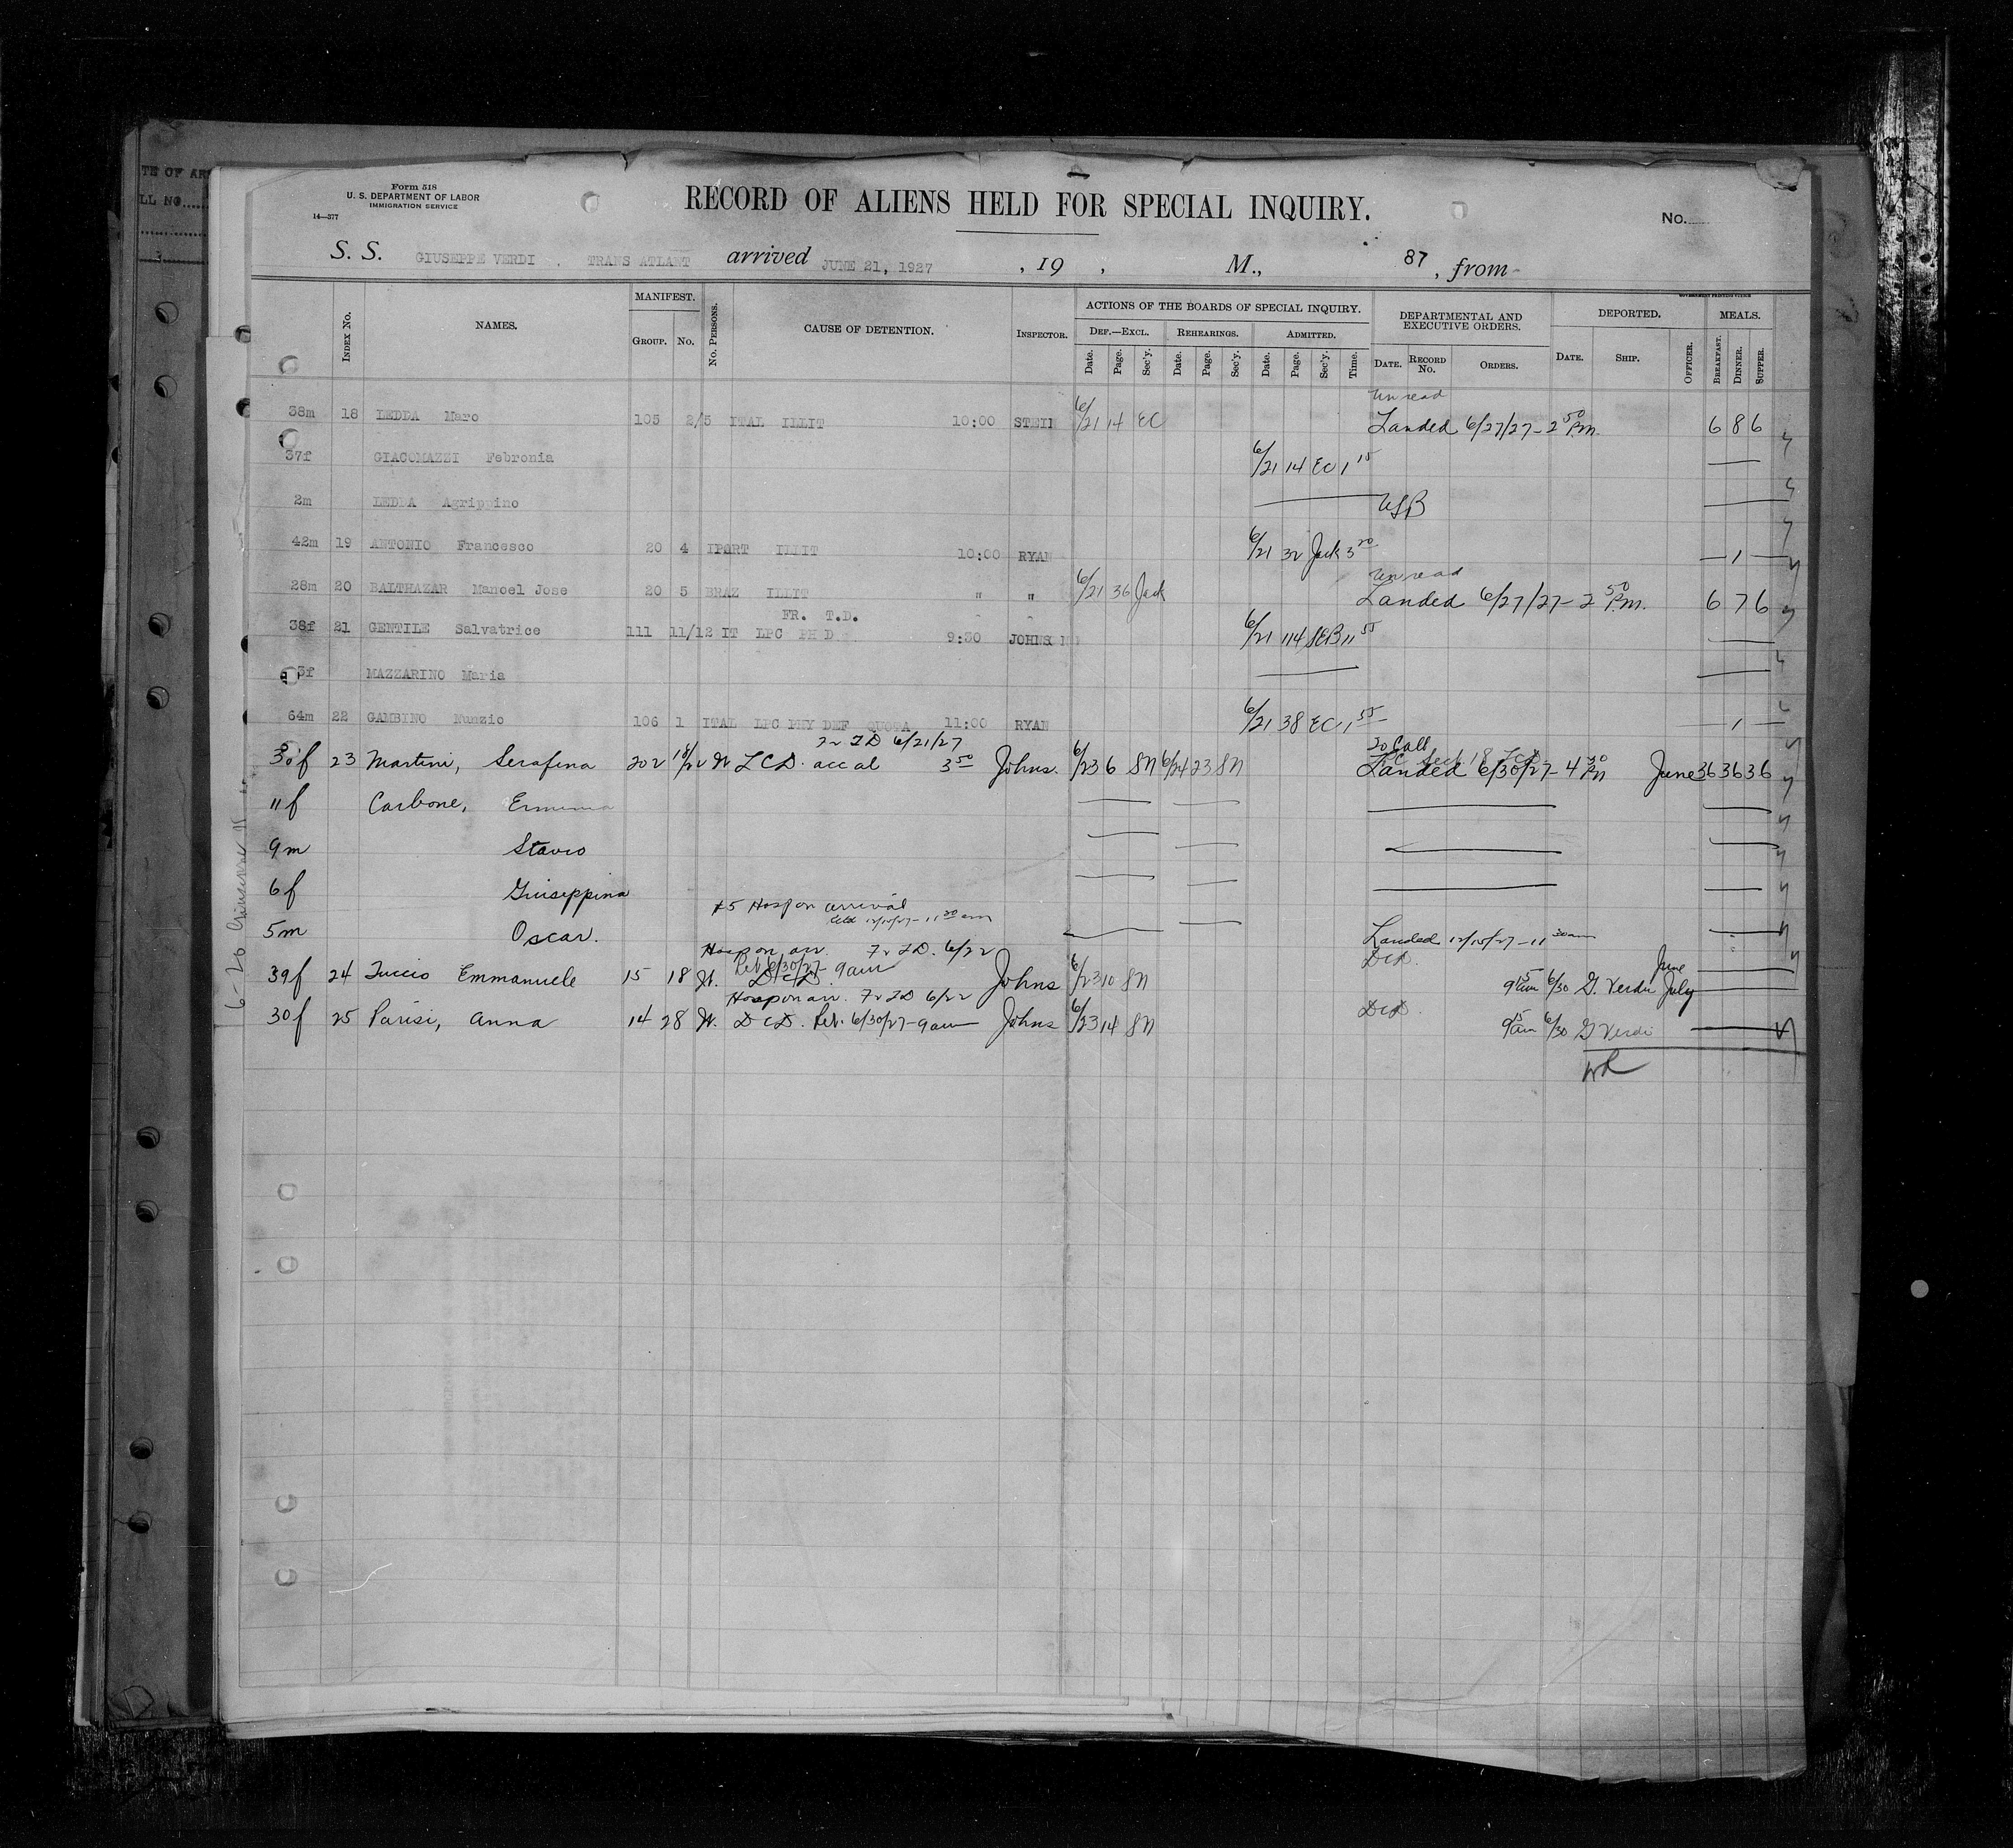 TE OF AR
LL NO.......
Form 518
U. S. DEPARTMENT OF LABOR
IMMIGRATION SERVICE
14—377
RECORD OF ALIENS HELD FOR SPECIAL INQUIRY.
No.......
S. S. GIUSEPPE VERDI . TRANS ATLANT arrived JUNE 21, 1927 , 19 , M., 87 , from
GOVERNMENT PRINTING OFFICE
INDEX NO. NAMES. MANIFEST. GROUP. NO. NO. PERSONS. CAUSE OF DETENTION. INSPECTOR. ACTIONS OF THE BOARDS OF SPECIAL INQUIRY. DEPARTMENTAL AND EXECUTIVE ORDERS. DEPORTED. MEALS.
DEF.—EXCL. REHEARINGS. ADMITTED.
Date. Page. Sec'y. Date. Page. Sec'y. Date. Page. Sec'y. Time. DATE. RECORD NO. ORDERS. DATE. SHIP. OFFICER. BREAKFAST. DINNER. SUPPER.
unread
38m 18 LEDDA Maro 105 2/5 ITAL ILLIT 10:00 STEIN 6/21 14 EC Landed 6/27/27 - 2 50 P.m. 6 8 6
37f GIACOMAZZI Febronia 6/21 14 EC 1 15
2m LEDDA Agrippino USB
42m 19 ANTONIO Francesco 20 4 IPORT ILLIT 10:00 RYAN 6/21 32 Jack 3 20 1
unread
28m 20 BALTHAZAR Manoel Jose 20 5 BRAZ ILLIT " " 6/21 36 Jack Landed 6/27/27 - 2 50 P.m. 6 7 6
FR. T.D.
38f 21 GENTILE Salvatrice 111 11/12 IT LPC PH D 9:30 JOHNS 6/21 114 SEB 11 55
3f MAZZARINO Maria
64m 22 GAMBINO Nunzio 106 1 ITAL LPC PHY DEF QUOTA 11:00 RYAN 6/21 38 EC 1 55 1
6/21/27
30f 23 Martini, Serafina 202 18/22 It LCD. acc al 3 50 Johns. 6/23 6 SN 6/24 23 SN Landed 6/30/27 - 4 30 Pm June 36 36 36
11f Carbone,
9m
6f Giuseppina
#5 Hosp on arrival
5m Oscar. Landed 12/15/27 - 11 30 am
Hosp on arr. 6/22
Rel. 6/30/27 - 9 am
June
39f 24 Tuccio Emmanuele 15 18 It. DCD. Johns 6/23 10 SN DCD. 9 15 am 6/30 G. Verdi July
Hosp on arr. 6/22
30f 25 Parisi, Anna 14 28 It. DCD. Rel. 6/30/27 - 9 am Johns 6/23 14 SN DCD. 9 15 am 6/30 G Verdi